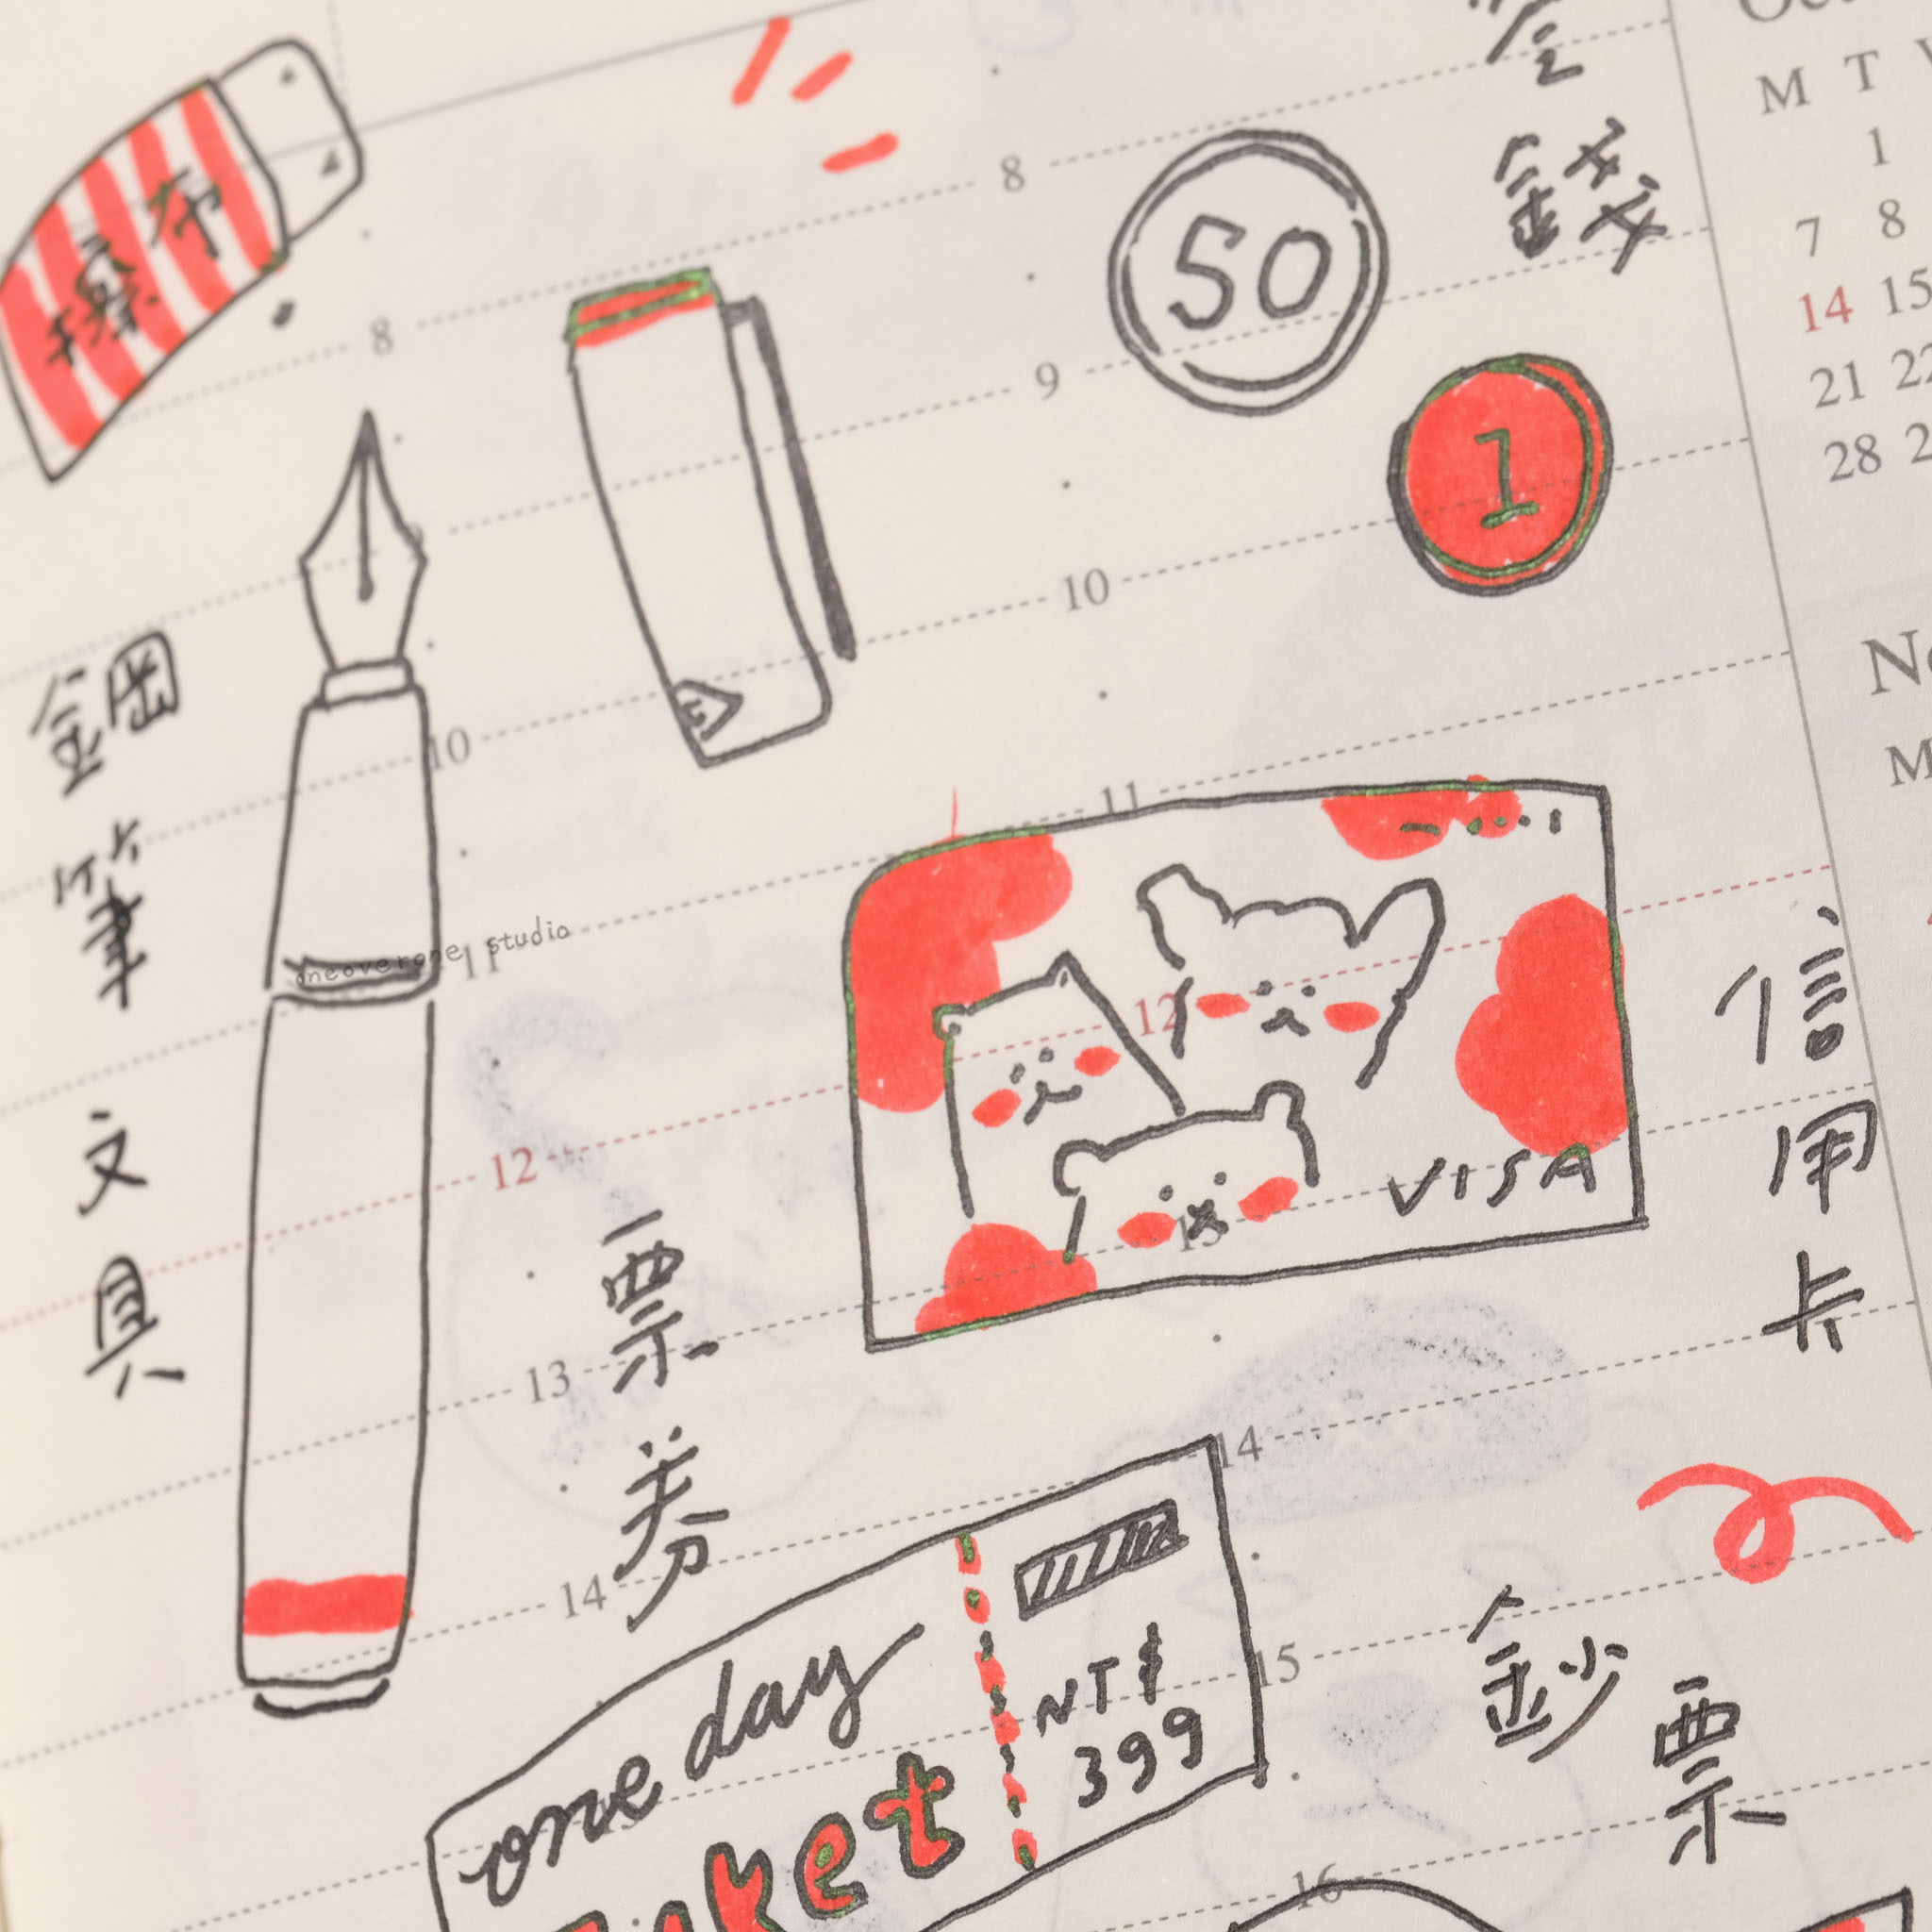 擦布
8
9
10
11
12
13
14
鋼筆
文具
oneoverone studio
8
9
10
11
12
13
14
15
16
50
1
金錢
VISA
信用卡
票券
one day
NT$
399
鈔票
M T
1
7 8
14 15
21 22
28
M